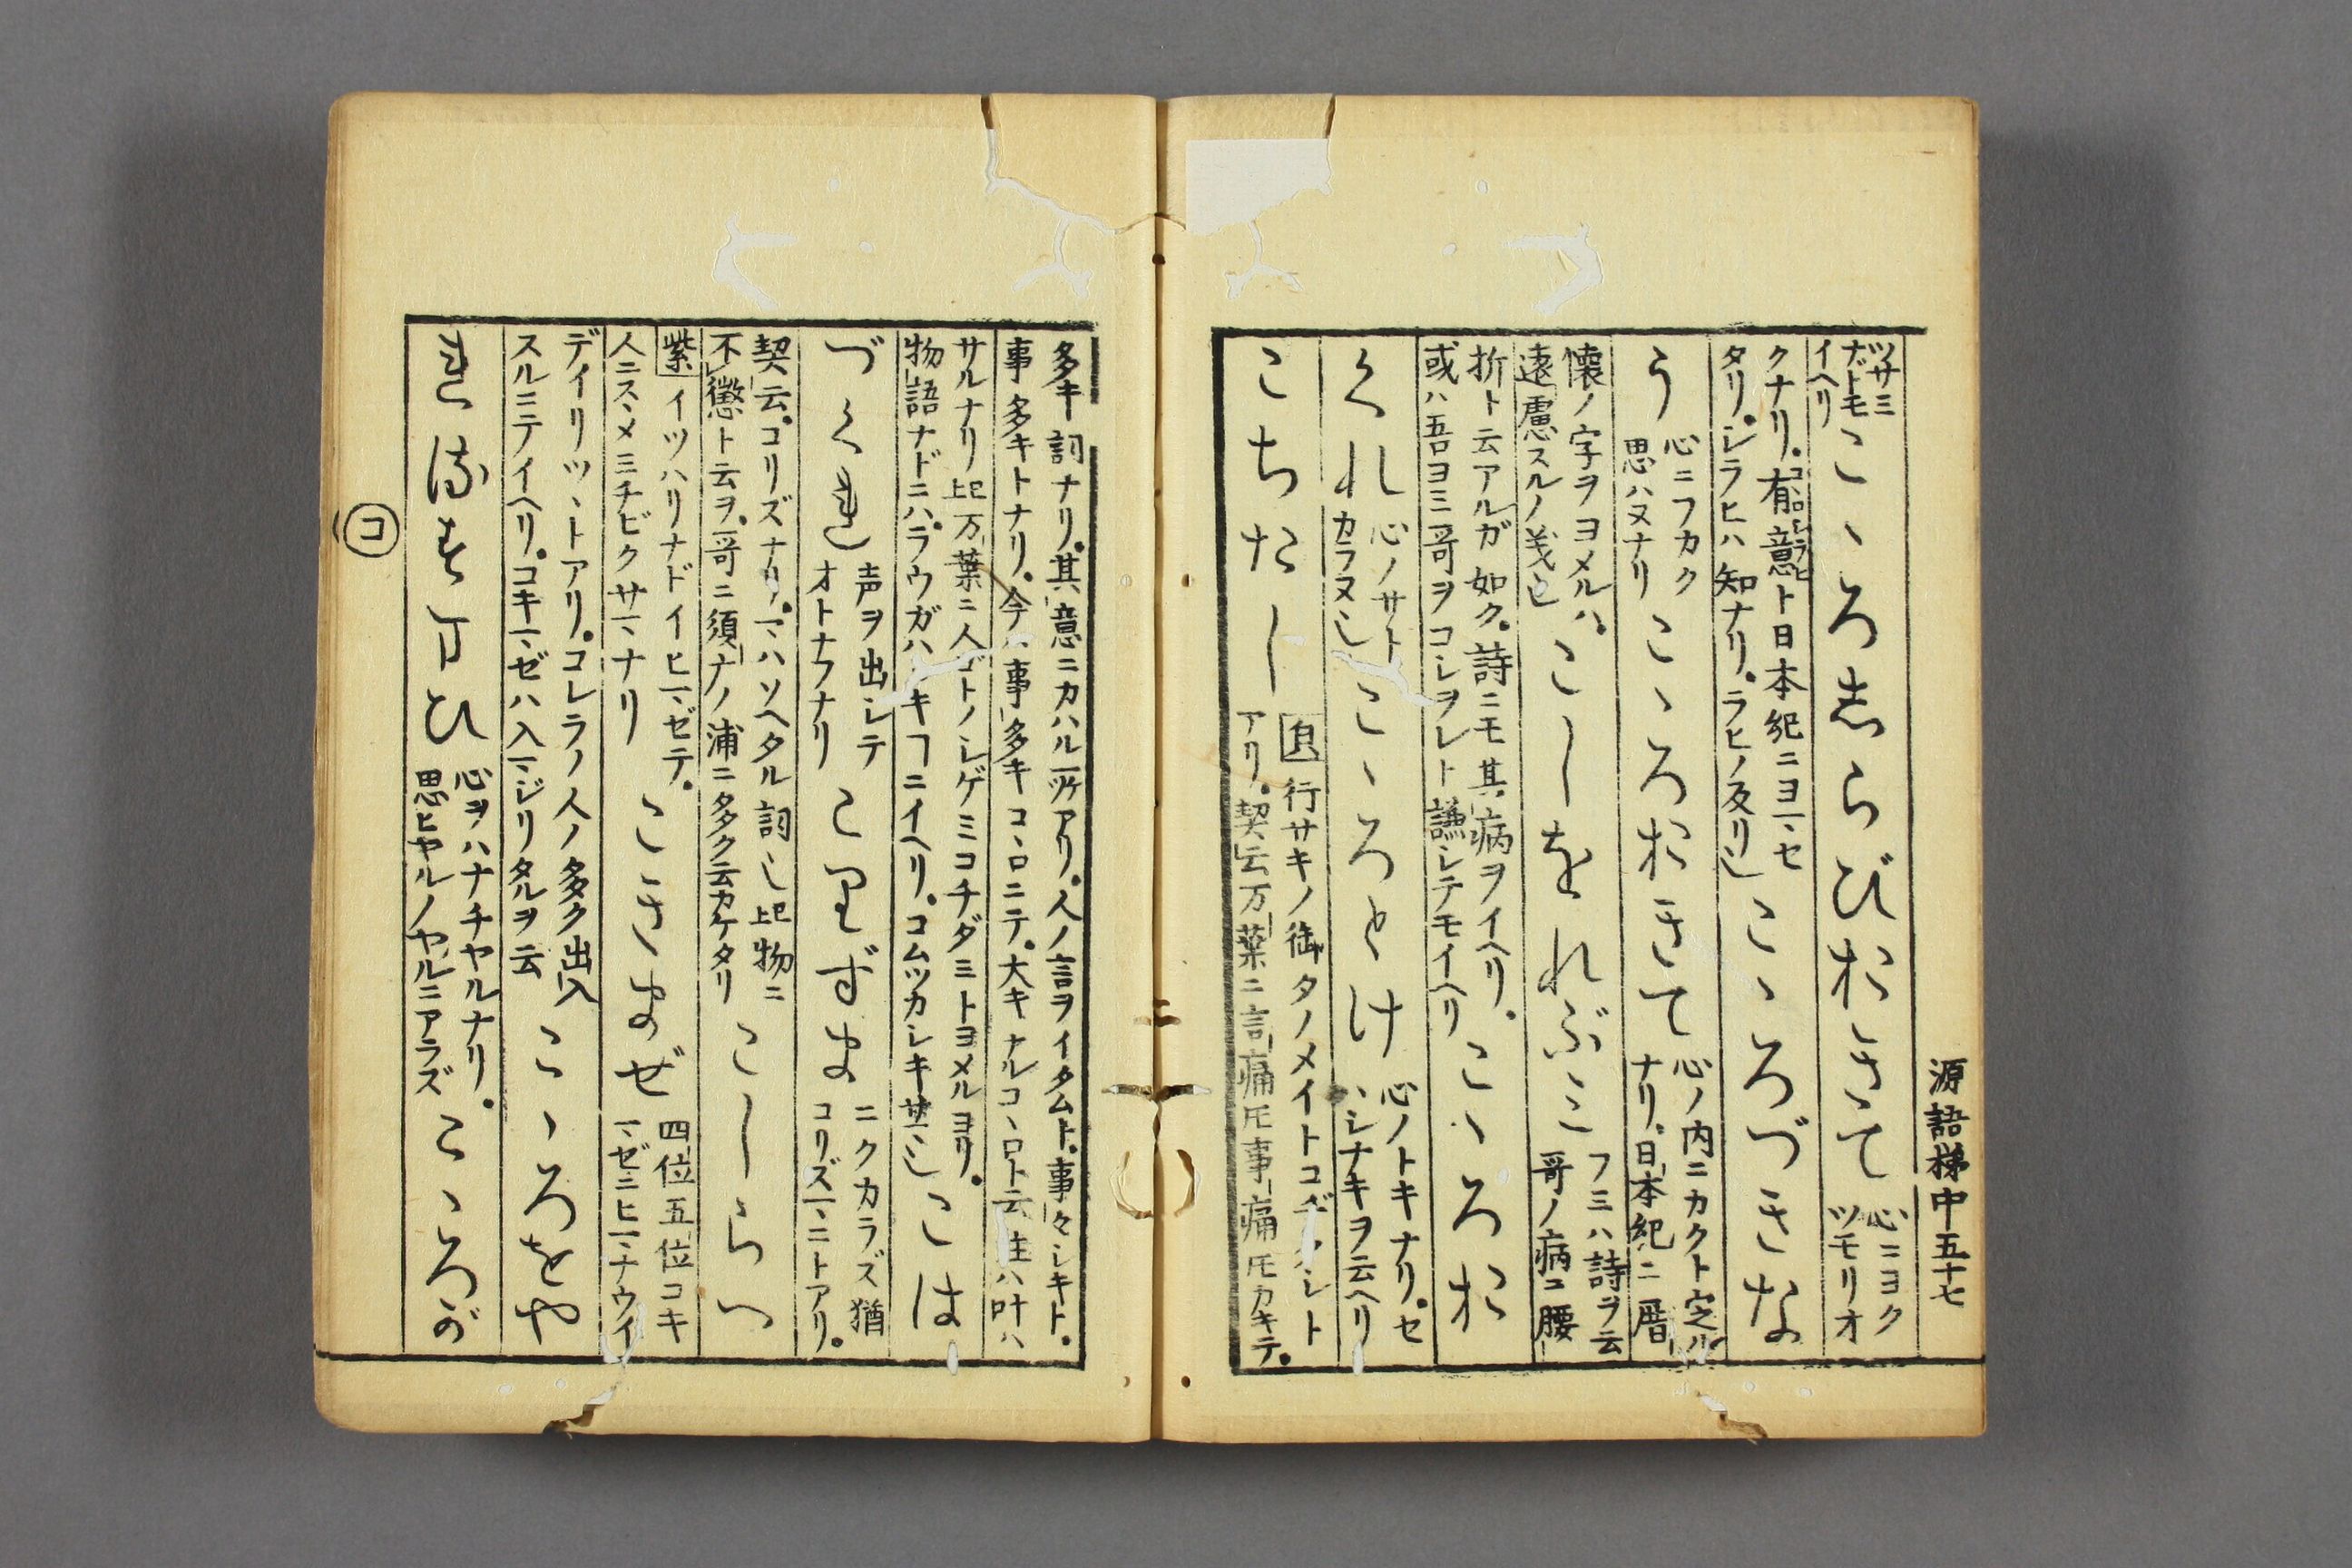 源語梯中五十七
ツサミ
ナドモ
イヘリ
こゝろしらびおきて
心ニヨク
ツモリオ
クナリ。有意ト日本紀ニヨマセ
タリ。シラヒハ知ナリ。ラヒノ反リ也
こゝろづきな
う
心ニフカク
思ハヌナリ
こゝろおきて
心ノ内ニカクト定ル
ナリ。日本紀ニ
懐ノ字ヲヨメルハ。
遠慮スルノ義也
こしをれぶミ
フミハ詩ヲ云
哥ノ病ニ腰
折ト云アルガ如ク。詩ニモ其病ヲイヘリ。
或ハ吾ヨミ哥ヲコシヲレト謙シテモイヘリ
こゝろお
くれ
心ノサト
カラヌ也
こゝろとけ
心ノトキナリ。セ
ハシナキヲ云ヘリ
こちたし
行サキノ御タノメイトコチタシト
アリ。契云万葉ニ言痛トモ事痛トモカキテ。
多キ詞ナリ。其意ニカハル所アリ。人ノ言ヲイタムト。事々シキト。
事多キトナリ。今ハ事多キコヽロニテ。大キナルコヽロト云注ハ叶ハ
サルナリ此万葉ニ人ゴトノシゲミコチダミトヨメルヨリ。
物語ナドニハ。ラウガハシキコトニイヘリ。コムツカシキサマ也
こは
づくれ
声ヲ出シテ
オトナフナリ
こりずま
ニクカラズ猶
コリズマニトアリ。
契云。コリズナリ。マハソヘタル詞也此物ニ
不懲ト云ヲ。哥ニ須ナノ浦ニ多ク云カケタリ
こしらへ
紫イツハリナドイヒマゼテ。
人ニスヽメミチビクサマナリ
こきまぜ
四位五位コキ
マゼニヒマナウイ
デイリツヽトアリ。コレラノ人ノ多ク出入
スルニテイヘリ。コキマゼハ入マジリタルヲ云
こゝろをや
心ヲハナチヤルナリ。
思ヒヤルノヤルニアラズ
こゝろが
コ